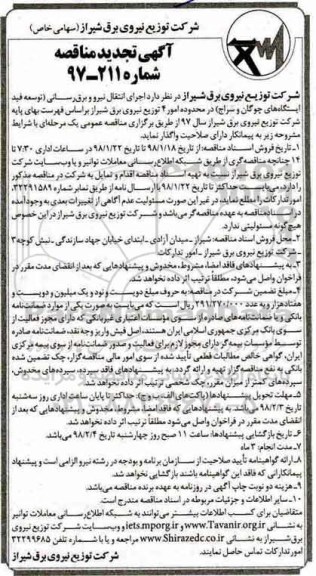 شرکت توزیع نیروی برق شیراز (سهامی خاص)
آگهی تجدید مناقصه
شماره ۲۱۱-۹۷
شرکت توزیع نیروی برق شیراز در نظر دارد اجرای انتقال نیرو و برق‌رسانی (توسعه فید
ایستگاه‌های چوگان و سراج) در محدوده امور ۴ توزیع نیروی برق شیراز براساس فهرست بهای پایه
شرکت توزیع نیروی برق شیراز سال ۹۷ از طریق برگزاری مناقصه عمومی یک مرحله‌ای با شرایط
مشروحه زیر به پیمانکار دارای صلاحیت واگذار نماید.
۱- تاریخ فروش اسناد مناقصه: از تاریخ ۹۸/۱/۱۸ تا تاریخ ۹۸/۱/۲۲ در ساعات اداری ۷:۳۰ تا
۱۴ چنانچه مناقصه‌گری از طریق شبکه اطلاع‌رسانی معاملات توانیر و یا وب‌سایت شرکت
توزیع نیروی برق شیراز نسبت به تهیه اسناد مناقصه اقدام و تمایل به شرکت در مناقصه مذکور
را دارد، می‌بایست حداکثر تا تاریخ ۹۸/۱/۲۲ با ارسال نامه از طریق نمابر شماره ۳۲۲۹۱۵۸۹
امور تدارکات را مطلع نماید، در غیر این صورت مسئولیت عدم آگاهی از تغییرات بعدی به وجود آمده
در اسناد مناقصه به عهده مناقصه‌گر می‌باشد و شرکت توزیع نیروی برق شیراز در این خصوص
هیچ گونه مسئولیتی ندارد.
۲- محل فروش اسناد مناقصه: شیراز - میدان آزادی - ابتدای خیابان جهاد سازندگی - نبش کوچه ۳
شرکت توزیع نیروی برق شیراز - امور تدارکات
۳- به پیشنهادهای فاقد امضا، مشروط، مخدوش و پیشنهادهایی که بعد از انقضای مدت مقرر در
فراخوان واصل می‌شود، مطلقاً ترتیب اثر داده نخواهد شد.
۴- مبلغ تضمین شرکت در مناقصه به حروف مبلغ دویست و نود و یک میلیون و دویست و
هفتاد هزار و به عدد ۲۹۱/۲۷۰/۰۰۰ ریال است که می‌بایست به صورت یکی از موارد ضمانت‌نامه
بانکی و یا ضمانت‌نامه‌های صادره از سوی مؤسسات اعتباری غیربانکی که دارای مجوز فعالیت از
سوی بانک مرکزی جمهوری اسلامی ایران هستند، اصل فیش واریز وجه نقد، ضمانت‌نامه صادره
توسط مؤسسات بیمه‌گر دارای مجوز لازم برای فعالیت و صدور ضمانت‌نامه از سوی بیمه مرکزی
ایران، گواهی خالص مطالبات قطعی تأیید شده از سوی امور مالی مناقصه‌گزار، چک تضمین شده
بانکی به نفع مناقصه‌گزار تهیه و ارائه گردد. به پیشنهادهای فاقد سپرده، سپرده‌های مخدوش،
سپرده‌های کمتر از میزان مقرر، چک شخصی ترتیب اثر داده نخواهد شد.
۵- مهلت تحویل پیشنهادها (پاکت‌های الف، ب و ج): حداکثر تا پایان ساعت اداری روز سه‌شنبه
تاریخ ۹۸/۲/۳ می‌باشد. به پیشنهادهایی که فاقد امضا، مشروط، مخدوش و پیشنهادهایی که بعد از
انقضای مدت مقرر در فراخوان واصل می‌شود مطلقاً ترتیب اثر داده نخواهد شد.
۶- تاریخ بازگشایی پیشنهادها: ساعت ۱۱ صبح روز چهارشنبه تاریخ ۹۸/۲/۴ می‌باشد.
۷- مدت انجام: ۳ ماه
۸- ارائه گواهینامه تأیید صلاحیت از سازمان برنامه و بودجه در رشته نیرو الزامی است و پیشنهاد
پیمانکارانی که فاقد این گواهینامه باشند بازگشایی نخواهد شد.
۹- هزینه دو نوبت چاپ آگهی در روزنامه به عهده برنده مناقصه می‌باشد.
۱۰- سایر اطلاعات و جزئیات مربوطه در اسناد مناقصه مندرج است.
متقاضیان برای کسب اطلاعات بیشتر می‌توانند به شبکه اطلاع‌رسانی معاملات توانیر
به نشانی www.Tavanir.org.ir و iets.mporg.ir وب‌سایت شرکت توزیع نیروی
برق شیراز به نشانی www.Shirazedc.co.ir مراجعه و یا با شماره تلفن ۳۲۲۹۹۶۸۵
امور تدارکات تماس حاصل نمایند.
شرکت توزیع نیروی برق شیراز